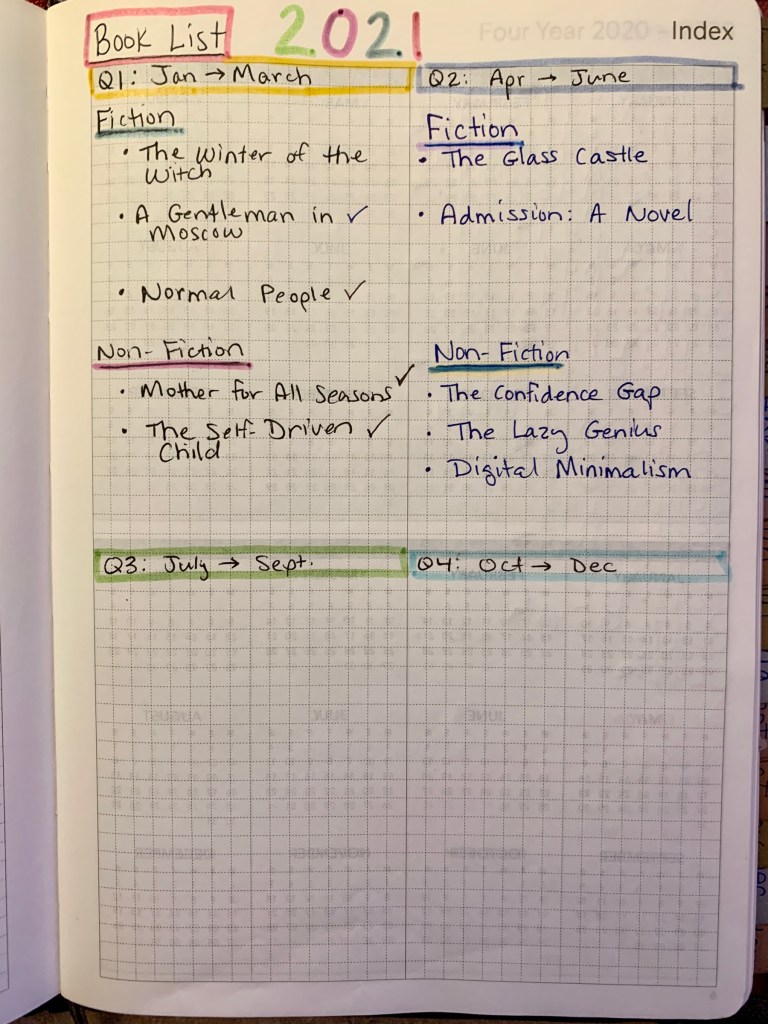 Book List 2021
Four Year 2020 –
Index
Q1: Jan → March
Fiction
• The Winter of the
Witch
• A Gentleman in ✓
Moscow
• Normal People ✓
Non-Fiction
• Mother for All Seasons ✓
• The Self-Driven ✓
Child
Q2: Apr → June
Fiction
• The Glass Castle
• Admission: A Novel
Non-Fiction
• The Confidence Gap
• The Lazy Genius
• Digital Minimalism
Q3: July → Sept.
Q4: Oct → Dec